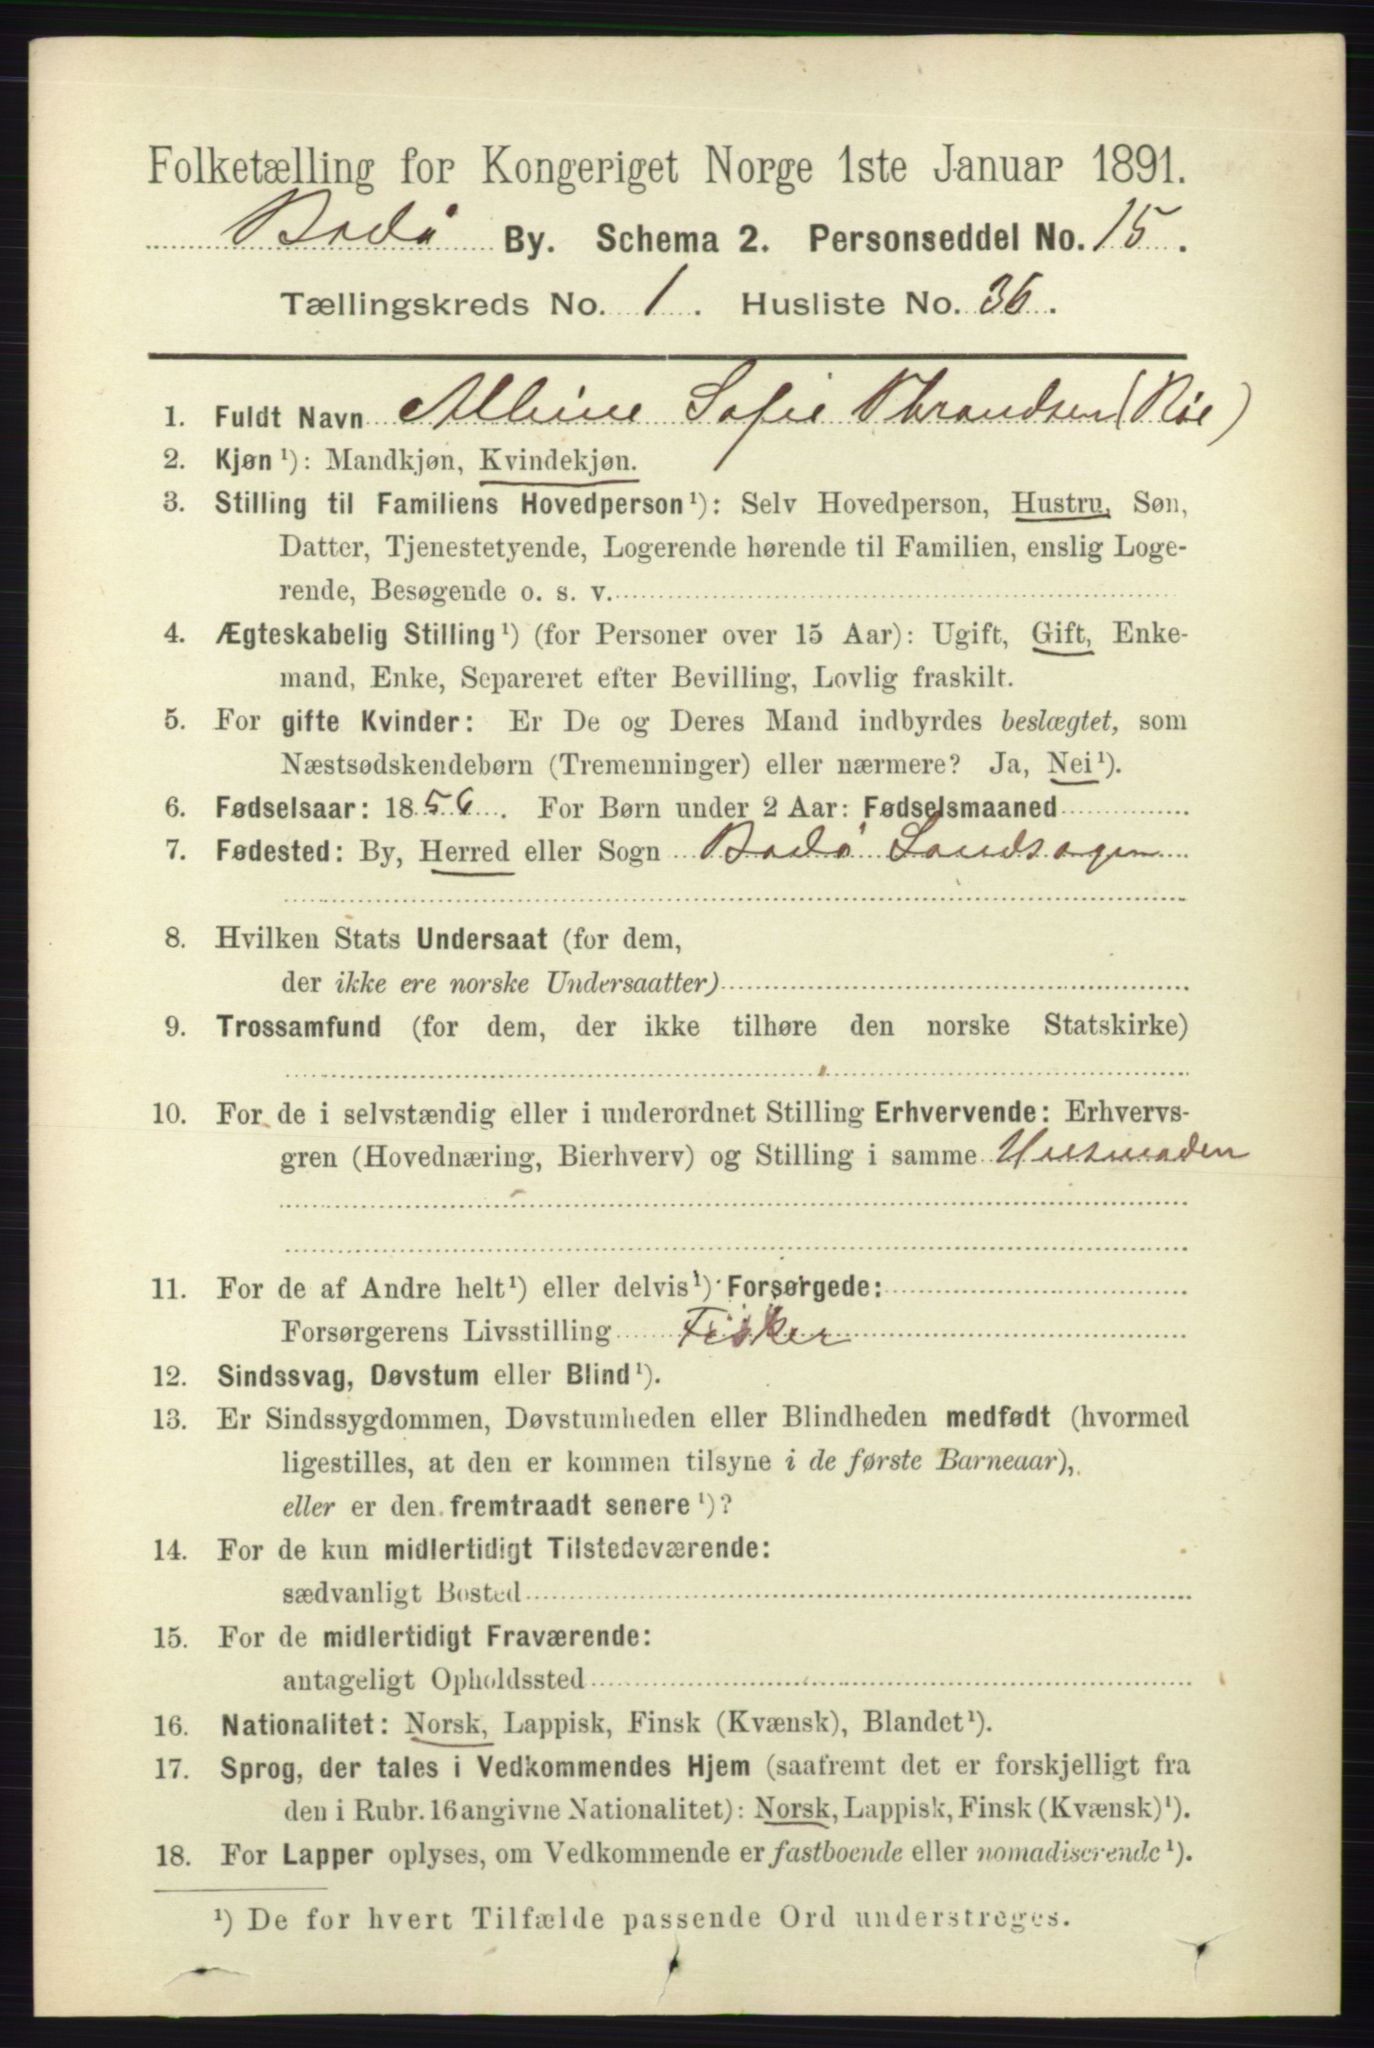 Folketælling for Kongeriget Norge 1ste Januar 1891.
Bodø By. Schema 2. Personseddel No. 15.
Tællingskreds No. 1. Husliste No. 36.
1. Fuldt Navn Albine Sofie Thrandsen (Røe)
2. Kjøn¹): Mandkjøn, Kvindekjøn.
3. Stilling til Familiens Hovedperson¹): Selv Hovedperson, Hustru, Søn,
Datter, Tjenestetyende, Logerende hørende til Familien, enslig Loge-
rende, Besøgende o. s. v.
4. Ægteskabelig Stilling¹) (for Personer over 15 Aar): Ugift, Gift, Enke-
mand, Enke, Separeret efter Bevilling, Lovlig fraskilt.
5. For gifte Kvinder: Er De og Deres Mand indbyrdes beslægtet, som
Næstsødskendebørn (Tremenninger) eller nærmere? Ja, Nei¹).
6. Fødselsaar: 1856. For Børn under 2 Aar: Fødselsmaaned
7. Fødested: By, Herred eller Sogn Bodø Landsogn
8. Hvilken Stats Undersaat (for dem,
der ikke ere norske Undersaatter)
9. Trossamfund (for dem, der ikke tilhøre den norske Statskirke)
10. For de i selvstændig eller i underordnet Stilling Erhvervende: Erhvervs-
gren (Hovednæring, Bierhverv) og Stilling i samme
11. For de af Andre helt¹) eller delvis¹) Forsørgede:
Forsørgerens Livsstilling Fisker
12. Sindssvag, Døvstum eller Blind¹).
13. Er Sindssygdommen, Døvstumheden eller Blindheden medfødt (hvormed
ligestilles, at den er kommen tilsyne i de første Barneaar),
eller er den fremtraadt senere¹)?
14. For de kun midlertidigt Tilstedeværende:
sædvanligt Bosted
15. For de midlertidigt Fraværende:
antageligt Opholdssted
16. Nationalitet: Norsk, Lappisk, Finsk (Kvænsk), Blandet¹).
17. Sprog, der tales i Vedkommendes Hjem (saafremt det er forskjelligt fra
den i Rubr. 16 angivne Nationalitet): Norsk, Lappisk, Finsk (Kvænsk)¹).
18. For Lapper oplyses, om Vedkommende er fastboende eller nomadiserende¹).
¹) De for hvert Tilfælde passende Ord understreges.